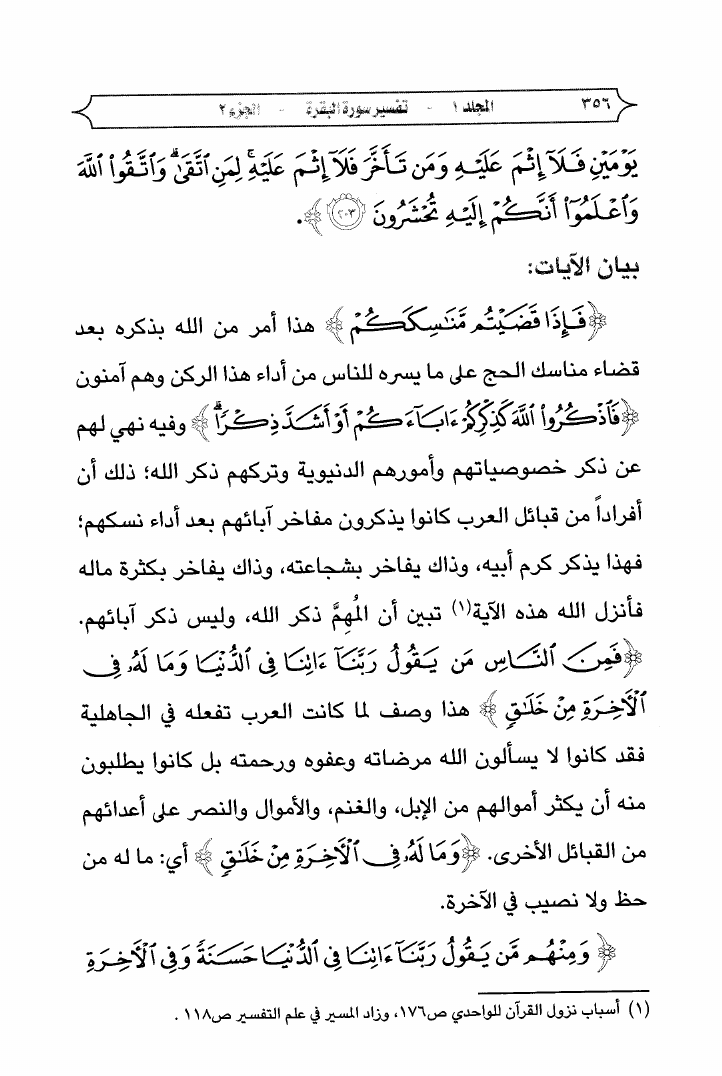 ٣٥٦ المجلد ١ - تفسير سورة البقرة - الجزء ٢
يَوْمَيْنِ فَلَآ إِثْمَ عَلَيْهِ وَمَن تَأَخَّرَ فَلَآ إِثْمَ عَلَيْهِ ۚ لِمَنِ ٱتَّقَىٰ ۗ وَٱتَّقُوا۟ ٱللَّهَ
وَٱعْلَمُوٓا۟ أَنَّكُمْ إِلَيْهِ تُحْشَرُونَ ﴿٢٠٣﴾ ﴾.
بيان الآيات:
﴿فَإِذَا قَضَيْتُم مَّنَٰسِكَكُمْ ﴾ هذا أمر من الله بذكره بعد
قضاء مناسك الحج على ما يسره للناس من أداء هذا الركن وهم آمنون
﴿فَٱذْكُرُوا۟ ٱللَّهَ كَذِكْرِكُمْ ءَابَآءَكُمْ أَوْ أَشَدَّ ذِكْرًا ۗ﴾ وفيه نهي لهم
عن ذكر خصوصياتهم وأمورهم الدنيوية وتركهم ذكر الله؛ ذلك أن
أفراداً من قبائل العرب كانوا يذكرون مفاخر آبائهم بعد أداء نسكهم؛
فهذا يذكر كرم أبيه، وذاك يفاخر بشجاعته، وذاك يفاخر بكثرة ماله
فأنزل الله هذه الآية(١) تبين أن المُهِمَّ ذكر الله، وليس ذكر آبائهم.
﴿فَمِنَ ٱلنَّاسِ مَن يَقُولُ رَبَّنَآ ءَاتِنَا فِى ٱلدُّنْيَا وَمَا لَهُۥ فِى
ٱلْءَاخِرَةِ مِنْ خَلَٰقٍ ﴾ هذا وصف لما كانت العرب تفعله في الجاهلية
فقد كانوا لا يسألون الله مرضاته وعفوه ورحمته بل كانوا يطلبون
منه أن يكثر أموالهم من الإبل، والغنم، والأموال والنصر على أعدائهم
من القبائل الأخرى. ﴿وَمَا لَهُۥ فِى ٱلْءَاخِرَةِ مِنْ خَلَٰقٍ ﴾ أي: ما له من
حظ ولا نصيب في الآخرة.
﴿ وَمِنْهُم مَّن يَقُولُ رَبَّنَآ ءَاتِنَا فِى ٱلدُّنْيَا حَسَنَةً وَفِى ٱلْءَاخِرَةِ
(١) أسباب نزول القرآن للواحدي ص١٧٦، وزاد المسير في علم التفسير ص١١٨ .